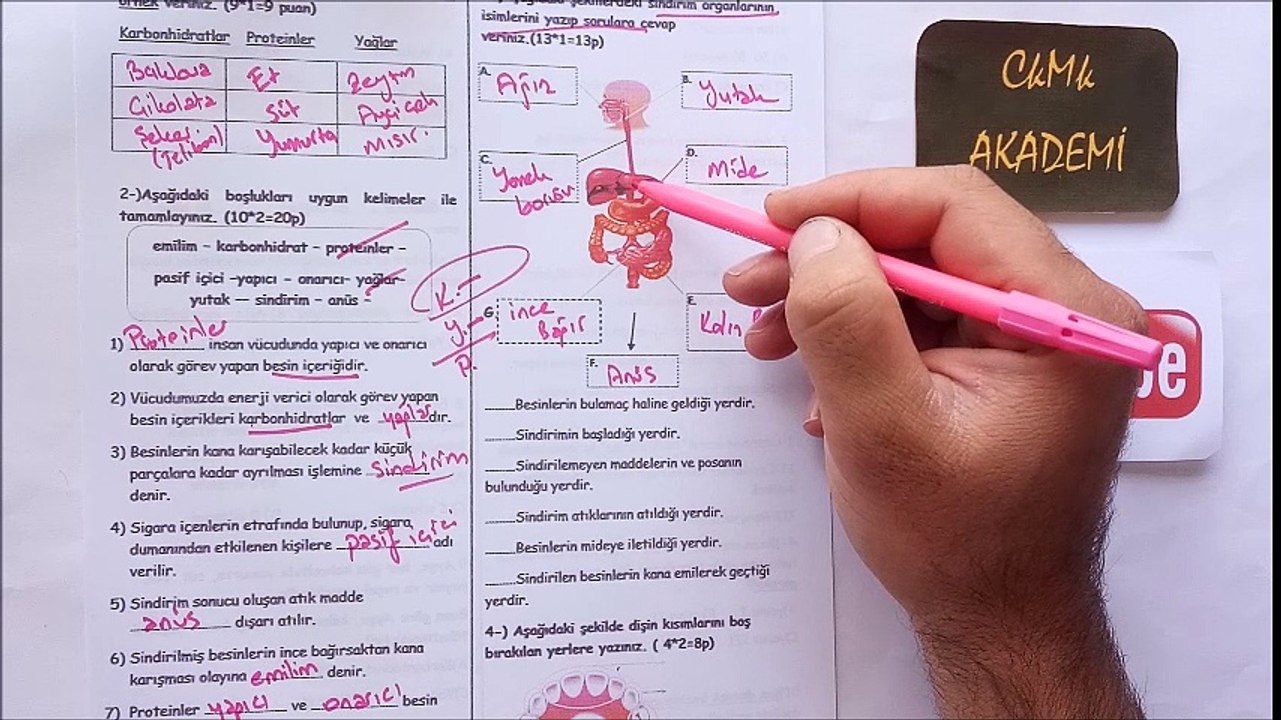 örnek veriniz. (9*1=9 puan)
Karbonhidratlar Proteinler Yağlar
Baklava Et Zeytin
Çikolata Süt Ayçiçek
Şeker Yumurta Mısır
2-)Aşağıdaki boşlukları uygun kelimeler ile
tamamlayınız. (10*2=20p)
emilim – karbonhidrat – proteinler –
pasif içici –yapıcı – onarıcı– yağlar–
yutak –– sindirim – anüs –
K.
Y
P.
1) Proteinler insan vücudunda yapıcı ve onarıcı
olarak görev yapan besin içeriğidir.
2) Vücudumuzda enerji verici olarak görev yapan
besin içerikleri karbonhidratlar ve yağlardır.
3) Besinlerin kana karışabilecek kadar küçük
parçalara kadar ayrılması işlemine sindirim
denir.
4) Sigara içenlerin etrafında bulunup, sigara
dumanından etkilenen kişilere pasif içici adı
verilir.
5) Sindirim sonucu oluşan atık madde
anüs dışarı atılır.
6) Sindirilmiş besinlerin ince bağırsaktan kana
karışması olayına emilim denir.
7) Proteinler yapıcı ve onarıcı besin
sindirim organlarının
isimlerini yazıp sorulara cevap
veriniz.(13*1=13p)
A. Ağız
B. Yutak
C. Yemek borusu
D. Mide
E. Kalın
G. ince Bağır
F. Anüs
____Besinlerin bulamaç haline geldiği yerdir.
____Sindirimin başladığı yerdir.
____Sindirilemeyen maddelerin ve posanın
bulunduğu yerdir.
____Sindirim atıklarının atıldığı yerdir.
____Besinlerin mideye iletildiği yerdir.
____Sindirilen besinlerin kana emilerek geçtiği
yerdir.
4-) Aşağıdaki şekilde dişin kısımlarını boş
bırakılan yerlere yazınız. ( 4*2=8p)
CkMk
AKADEMİ
be